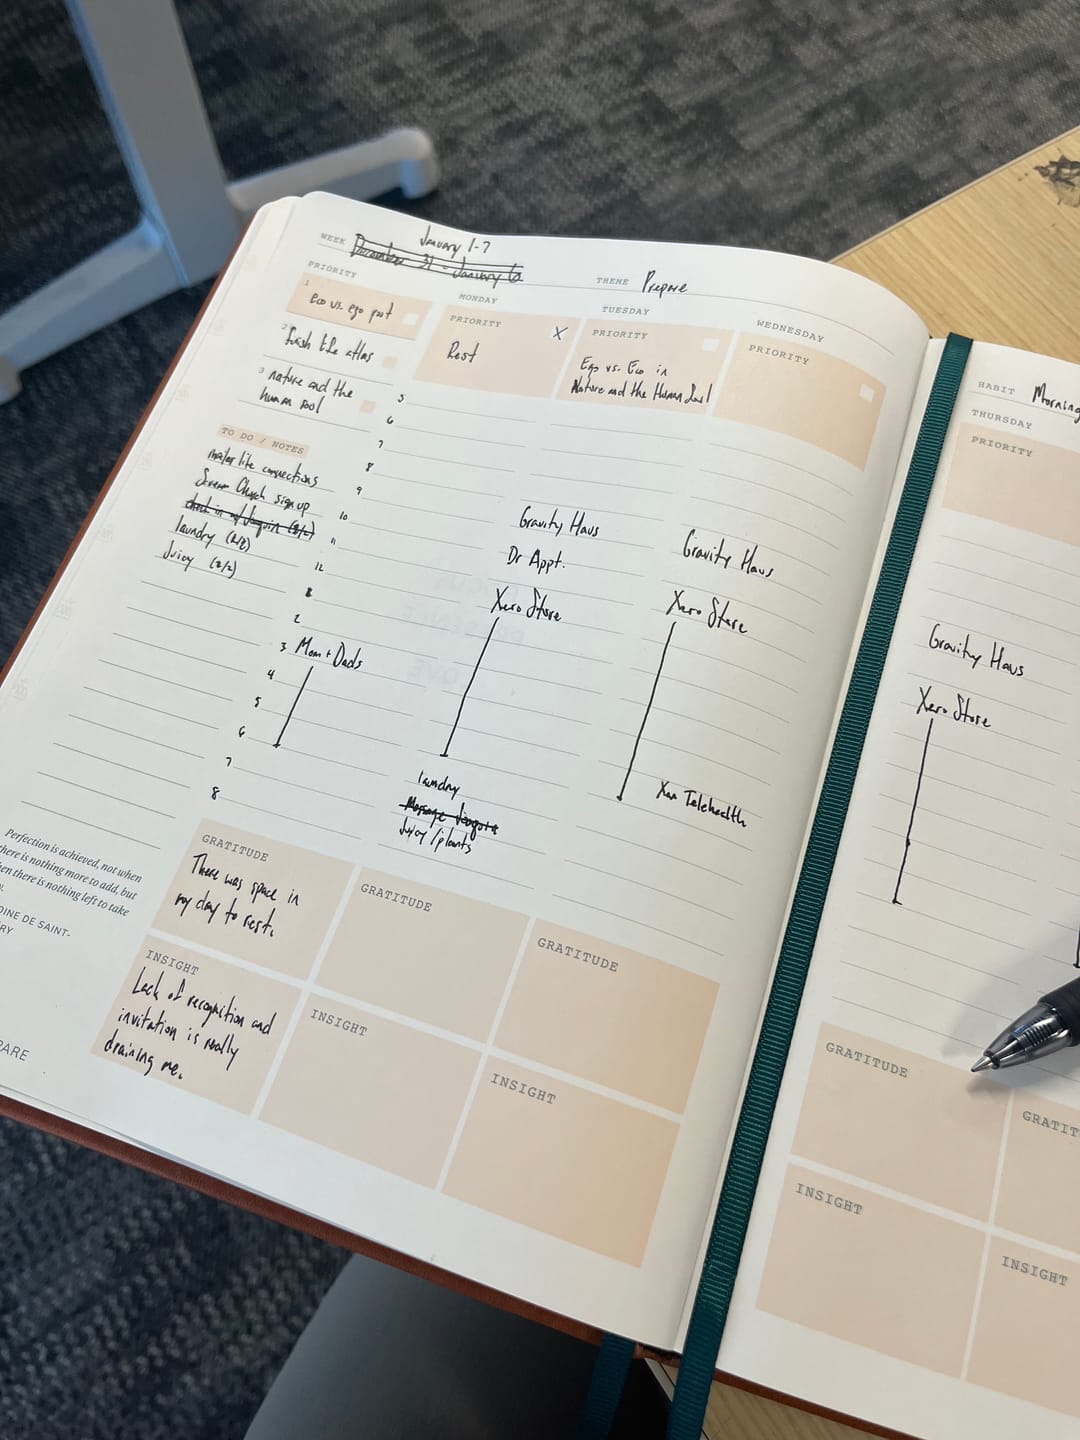 WEEK December 31 - January 6
January 1-7
THEME Prepare
PRIORITY
1 Eco vs. ego post
2 finish the atlas
3 nature and the
human soul
TO DO / NOTES
major life connections
Church sign up
check in w/ (2/2)
laundry (2/2)
Juicy (2/2)
Perfection is achieved, not when
there is nothing more to add, but
en there is nothing left to take
OINE DE SAINT-
RY
PARE
MONDAY
PRIORITY X
Rest
5
6
7
8
9
10
11
12
1
2
3 Mom + Dads
4
5
6
7
8
GRATITUDE
There was space in
my day to rest.
INSIGHT
Lack of recognition and
invitation is really
draining me.
TUESDAY
PRIORITY
Ego vs. Eco in
Nature and the Human Soul
Gravity Haus
Dr Appt.
Xero Store
laundry
Message
Juicy/plants
GRATITUDE
INSIGHT
WEDNESDAY
PRIORITY
Gravity Haus
Xero Store
Telehealth
GRATITUDE
INSIGHT
HABIT Morning
THURSDAY
PRIORITY
Gravity Haus
Xero Store
GRATITUDE
INSIGHT
GRATIT
INSIGHT